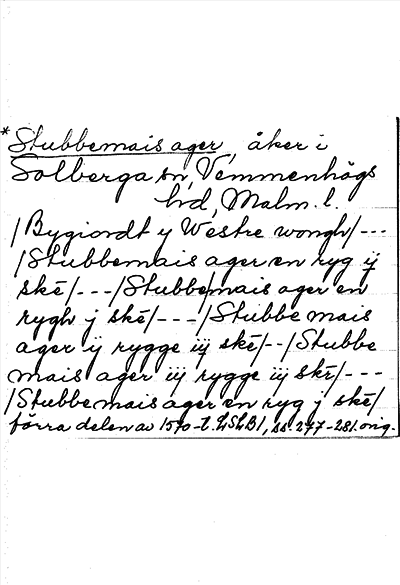 *Stubbemais ager, åker i
Solberga sn, Vemmenhögs
hrd, Malm. l.
/Bygiordt y Westre wongh/---
/Stubbemais ager en ryg ÿ
skē/---/Stubbe/mais ager en
rygh j skē/---/Stubbe mais
ager ÿ rygge iÿ skē/--/Stubbe
mais ager iÿ rygge iÿ skē/---
/Stubbemais ager en ryg j skē/
förra delen av 1570-t. LSLB1, ss. 277-281. orig.